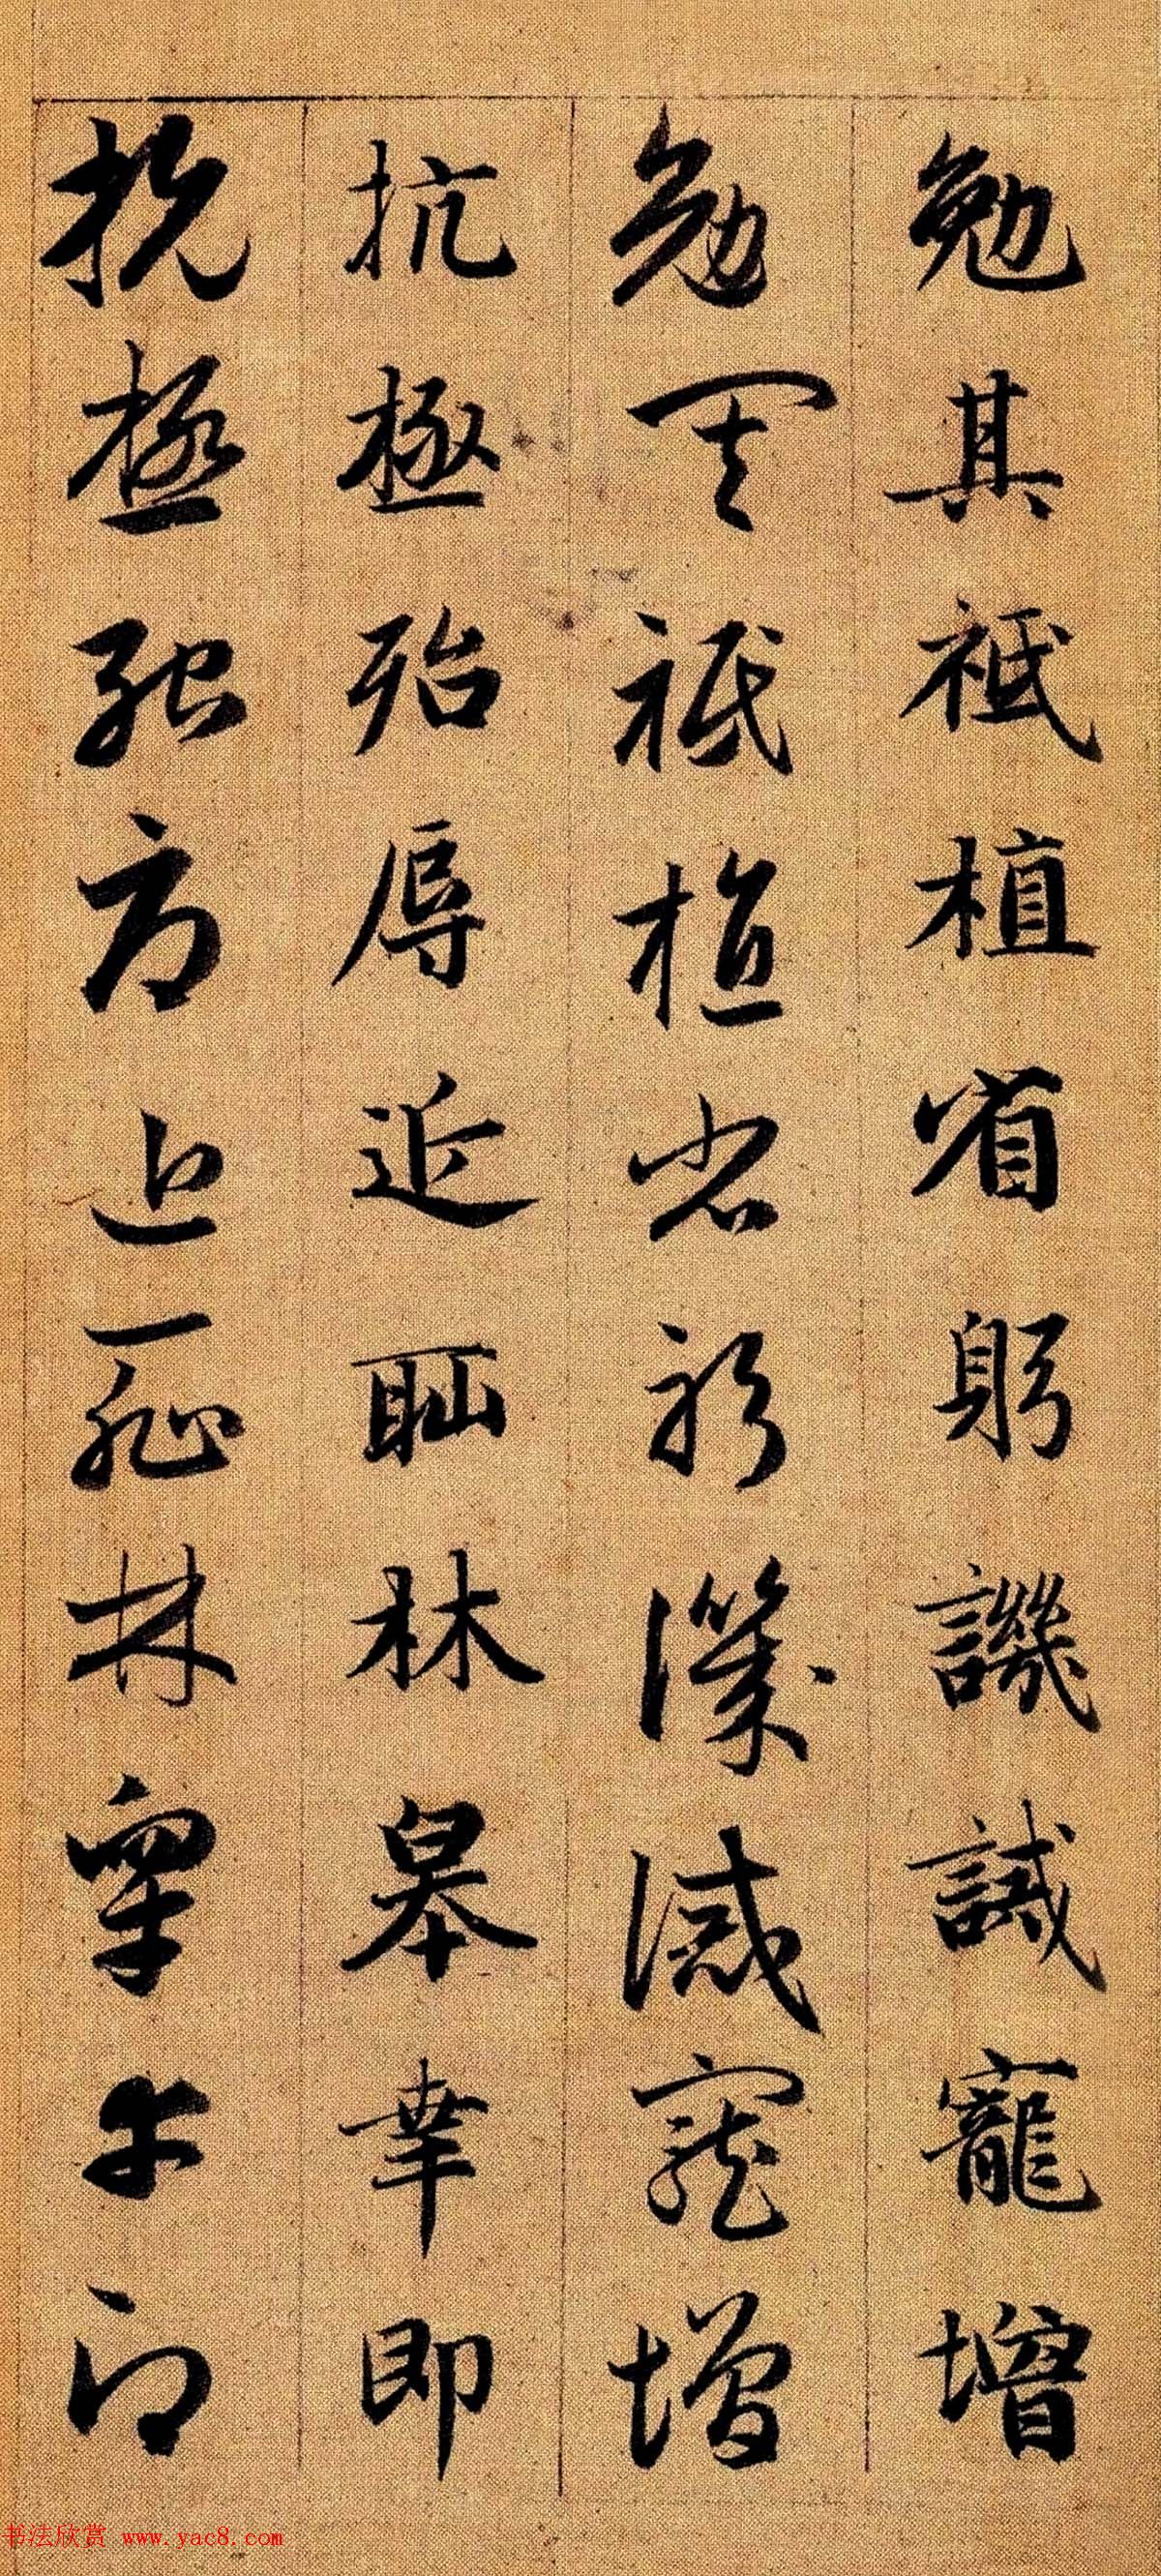 勉其祗植省躬譏誡寵增
勉其祗植省躬譏誡寵增
抗極殆辱近耻林皋幸即
抗極殆辱近耻林皋幸即
书法欣赏 www.yac8.com